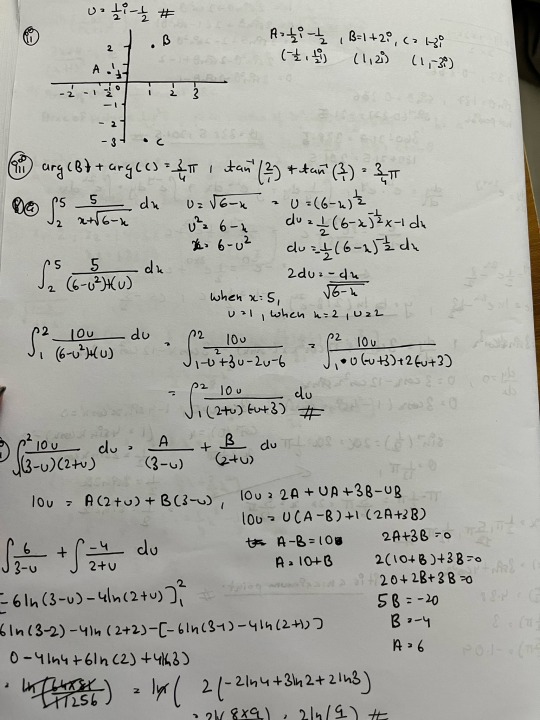 U = ½i - ½ #
ii
A = ½i - ½ , B = 1 + 2i , C = 1-3i
(-½, ½i) (1, 2i) (1, -3i)
2 B
A 1 ½
-2 -1 -½ 0 1 2 3
-1
-2
-3 C
iii arg(B) + arg(C) = 3/4 π , tan⁻¹(2/1) + tan⁻¹(3/1) = 3/4 π
∫₂⁵ 5/(x+√6-x) dx U = √6-x = U = (6-x)^½
U² = 6-x du = ½(6-x)^-½ x -1 dx
x = 6-U² du = -½(6-x)^-½ dx
∫₂⁵ 5/((6-U²)+(U)) dx 2du = -dx/√6-x
when x = 5,
U = 1 , when x = 2, U = 2
∫₁² 10U/((6-U²)+(U)) du = ∫₁² 10U/(-U²+3U-2U-6) = ∫₁² 10U/(U(-U+3)+2(-U+3))
= ∫₁² 10U/((2+U)(-U+3)) du #
∫₁² 10U/((3-U)(2+U)) du = A/(3-U) + B/(2+U) du
10U = A(2+U) + B(3-U) , 10U = 2A + UA + 3B - UB
10U = U(A-B) + 1(2A+3B)
A-B = 10 2A+3B = 0
A = 10+B 2(10+B)+3B = 0
20+2B+3B = 0
5B = -20
B = -4
A = 6
∫ 6/(3-U) + ∫ -4/(2+U) du
[-6ln(3-U) - 4ln(2+U)]₁²
6ln(3-2) - 4ln(2+2) - [-6ln(3-1) - 4ln(2+1)]
0 - 4ln4 + 6ln(2) + 4ln3)
= ln( ) = ln( 2(-2ln4 + 3ln2 + 2ln3)
= 2ln(8x9 = 2ln(9 #